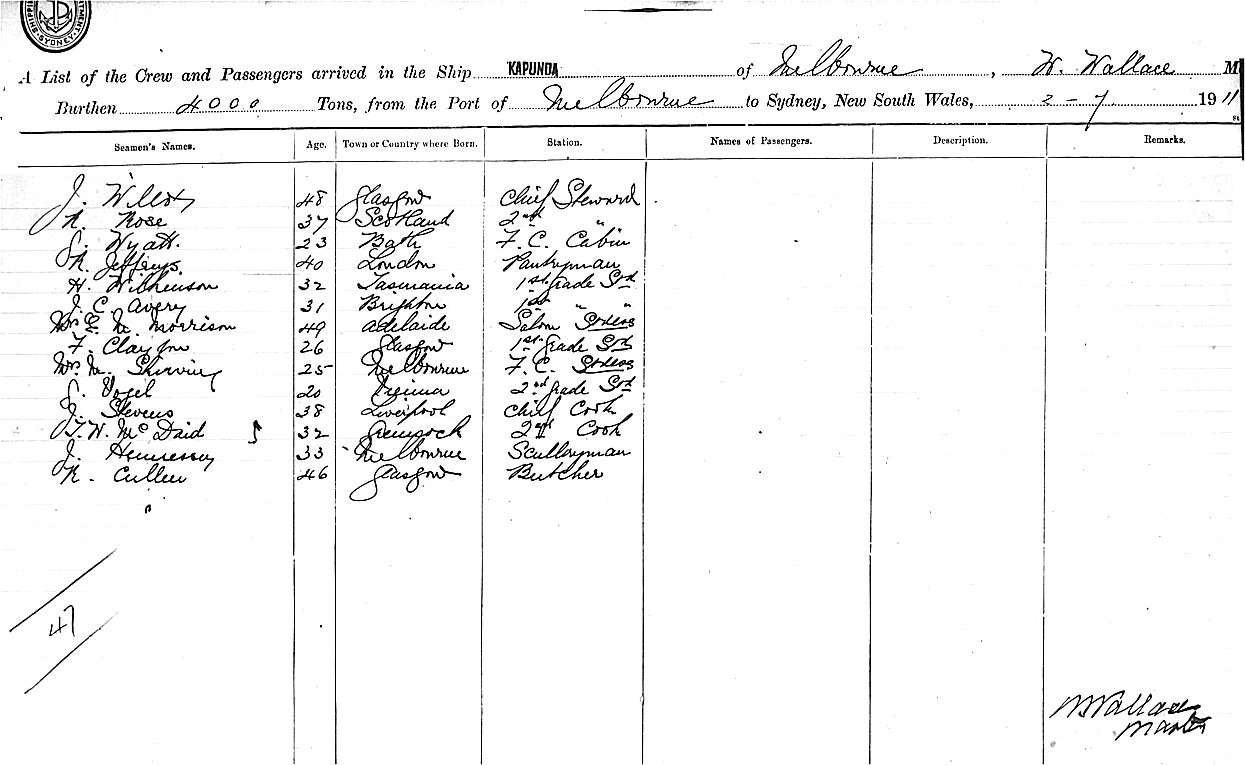 SYDNEY
A List of the Crew and Passengers arrived in the Ship KAPUNDA of Melbourne, W. Wallace M
Burthen 4000 Tons, from the Port of Melbourne to Sydney, New South Wales, 2-7 1911
Seamen's Names. Age. Town or Country where Born. Station. Names of Passengers. Description. Remarks.
J. 48 Glasgow Chief Steward
R. Rose 37 Scotland 2nd "
G. Wyatt. 23 Bath F. C. Cabin
R. Jefferys. 40 London Pantryman
H. Wilkinson 32 Tasmania 1st Grade Std
J. C. Avery 31 Brighton 1st " "
Mrs E. M. Morrison 49 Adelaide Saloon Stdess
F. Clayton 26 Glasgow 1st Grade Std
Mrs M. 25 Melbourne F. C. Stdess
G. 20 Vienna 2nd Grade Std
J. Stevens 38 Liverpool Chief Cook
T. W. McDaid 32 Greenock 2nd Cook
J. Hennessy 33 Melbourne Sculleryman
R. Cullen 46 Glasgow Butcher
47
W Wallace
Master